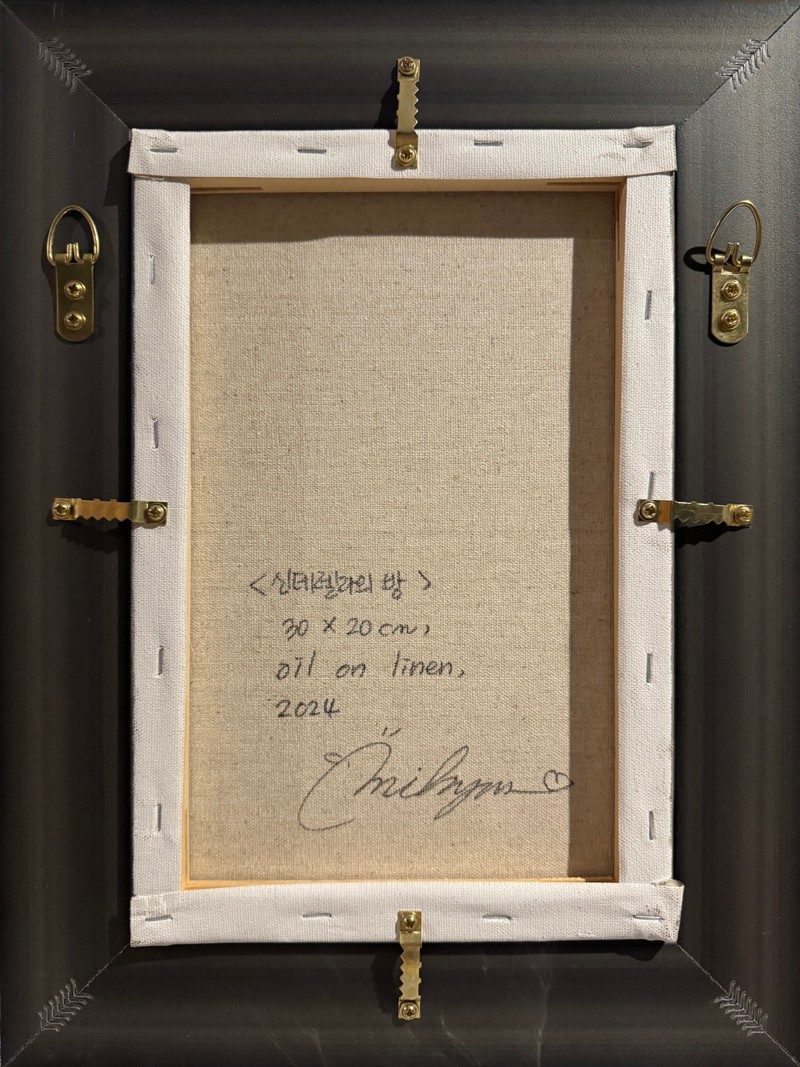 <신데렐라의 방>
30 × 20 cm,
oil on linen,
2024
Mihyun